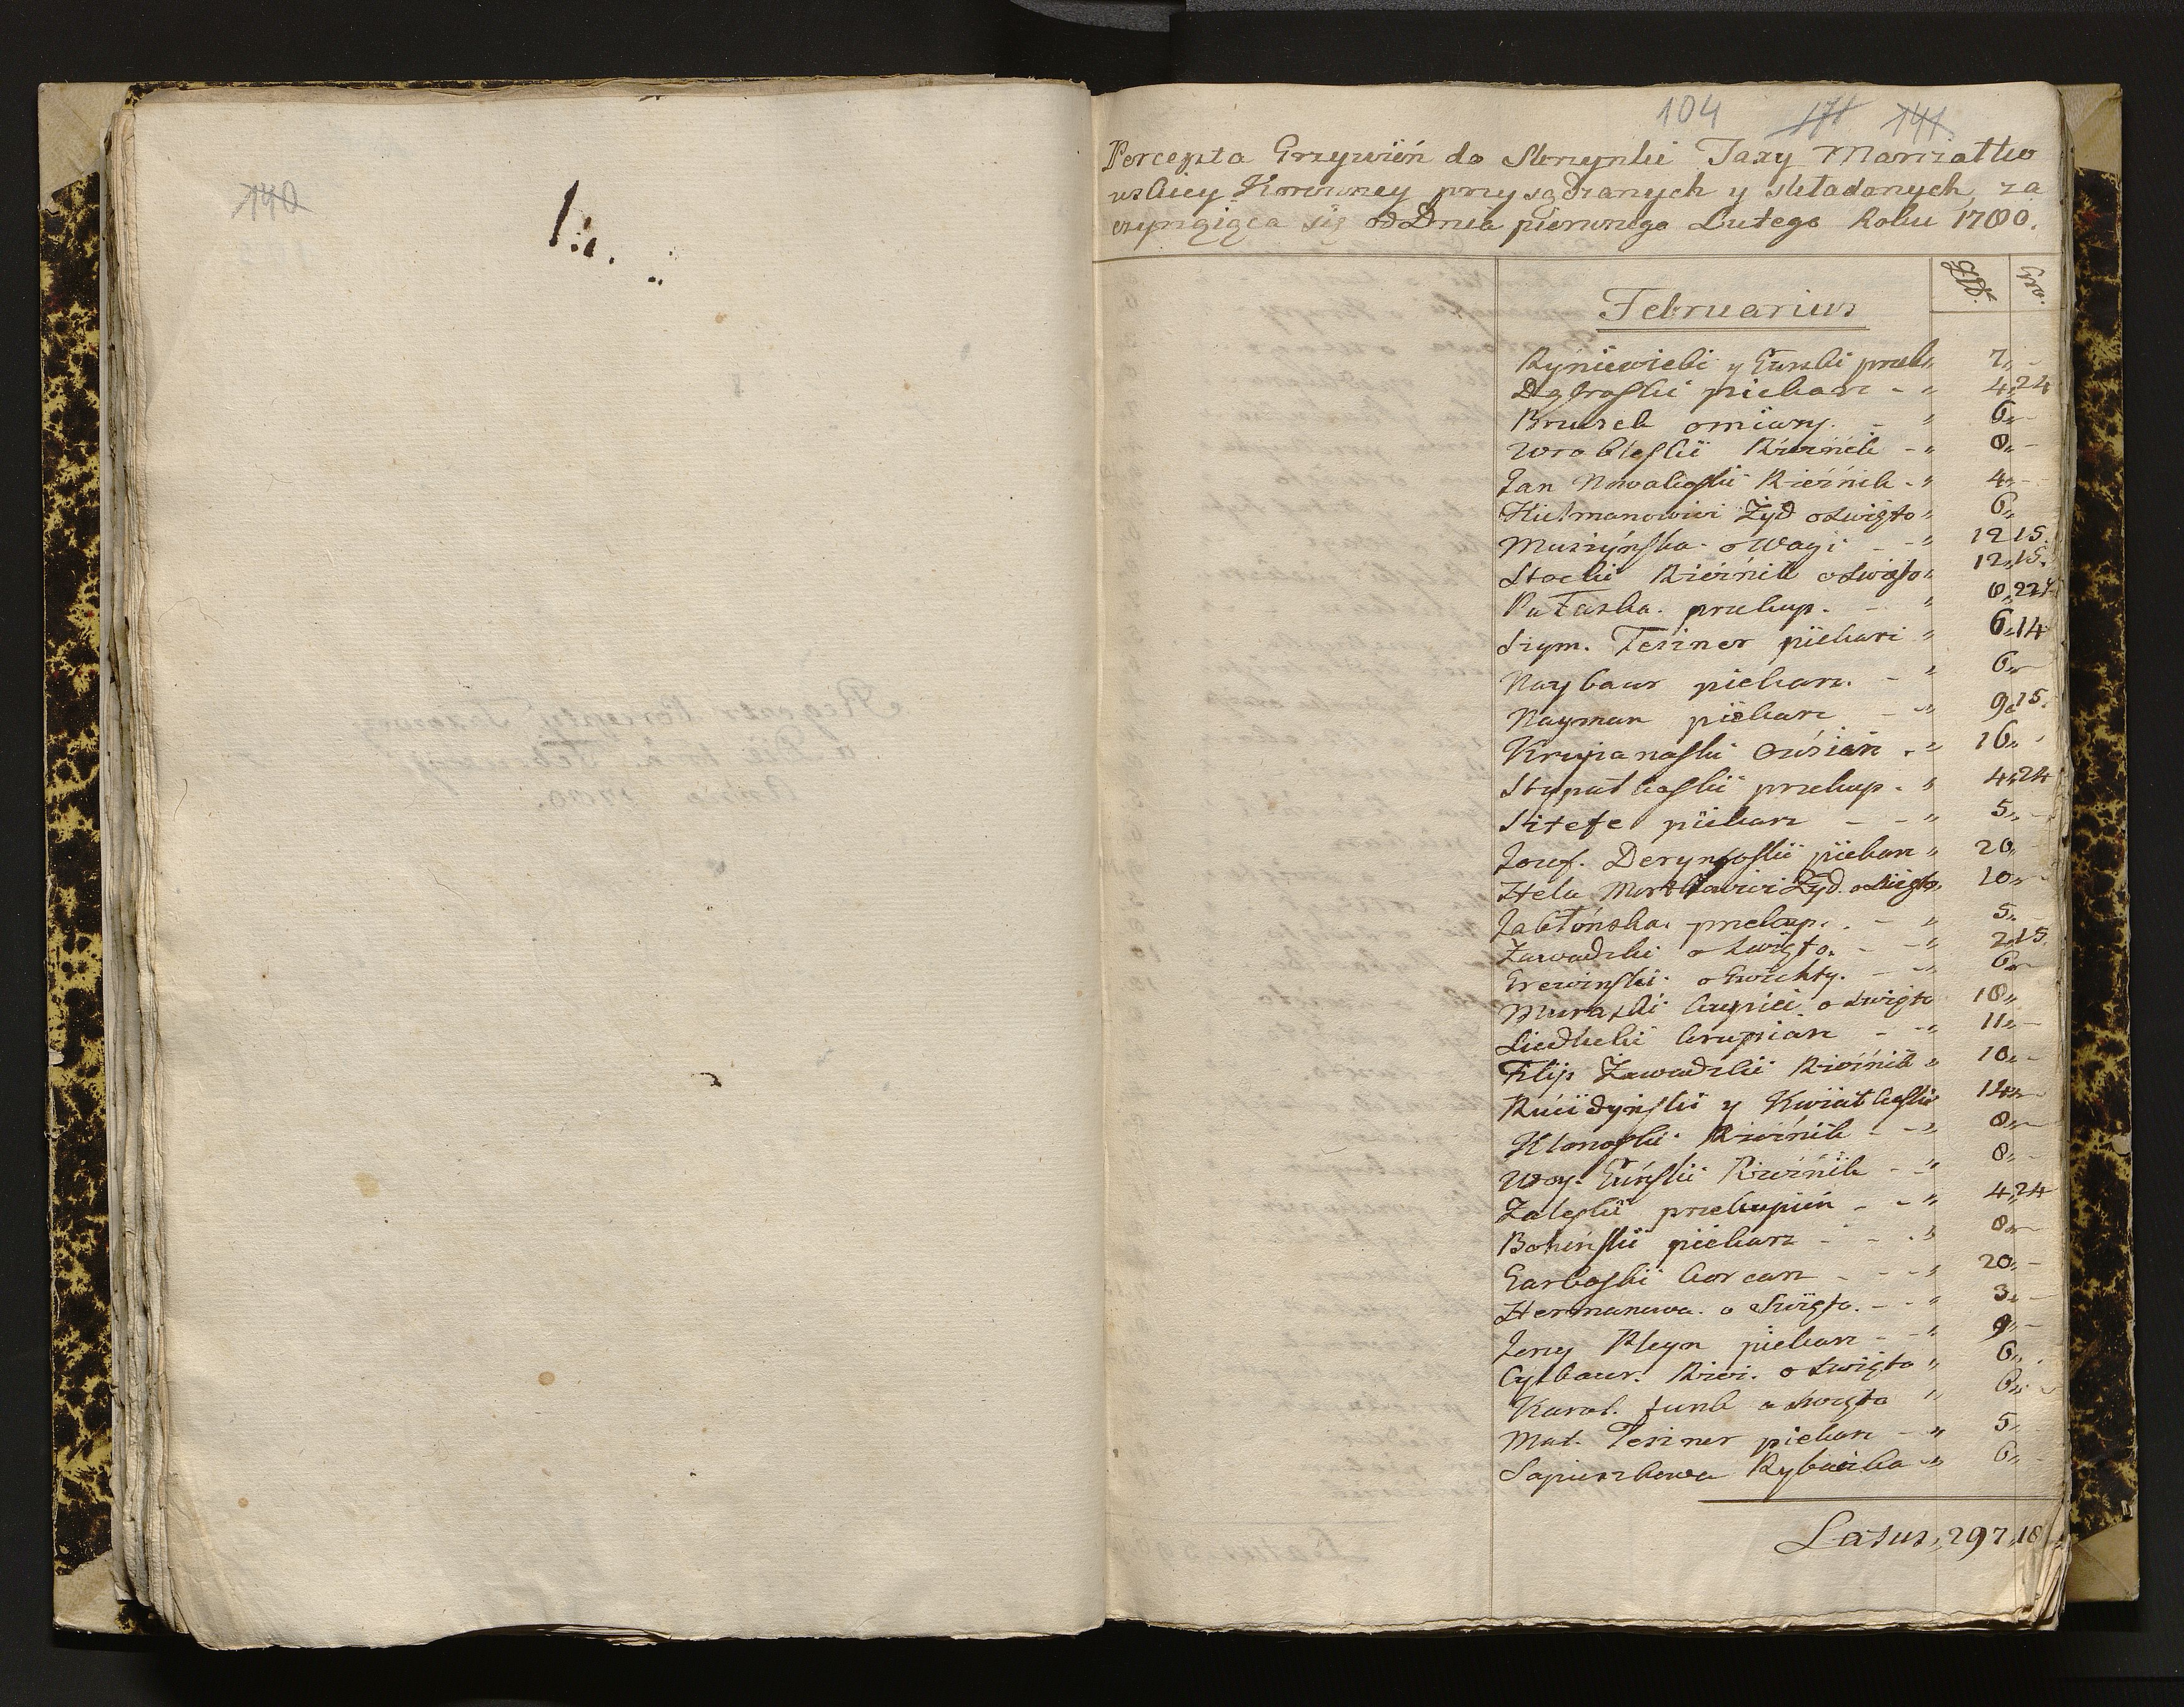 140
104 171 141
Percepta Grzywień do Skrzynki Taxy Marszałko
wskiey Koronney przysądzanych y składanych, za
czynaiąca się od Dnia pierwszego Lutego Roku 1780.
Złł. Gro.
Februarius
Ryniewicki y Gurski przek. 7 „ -
Dąbroski piekarz - „ 4 „ 24
Brusek o miary. - „ 6 „ -
Wrobleski Rzeźnik - „ 8 „ -
Jan Nowakoski Rzeźnik - „ 4 „ -
Hielmanowicz Żyd o święto „ 6 „
Muszyńska o Wagi - - „ 12 15.
Stocki Rzeźnik o święto „ 12 „ 15.
Pułaska. przekup. - „ 8 „ 22
Szym. Teszner piekarz „ 6 „ 14
Naybaur piekarz. - „ 6 „ -
Nayman piekarz - „ 9 „ 15.
Krupanoski Owsiarz . „ 16 „
Stypułkoski przekup. „ 4 „ 24
Sztefe piekarz - - „ 5 „ -
Jozef. Deryngoski piekarz „ 20 „
Hela Morkowicz Żyd. o święto „ 10 „ -
Jabłońska przekup. - „ 5 „
Zawadzki o święto. - „ 2 „ 15.
Grewinski o Gwichty. - „ 6 „ -
Muraski kupiec o święto 18 „
Siedlecki krupiarz - „ 11 „ -
Filip Zawadzki Rzeźnik „ 10 „ -
Ruszdyński y Kwiatkoski 14 „ -
Klonoski Rzeźnik - „ 8 „ -
Woy. Guński Rzeźnik - „ 8 „ -
Zaleski przekupień - „ 4 „ 24
Boheński piekarz - „ 8 „ -
Garkoski korcarz - „ 20 „ -
Hermanowa o Święto. - „ 3 „ -
Jerzy Kleyn piekarz - „ 9 „ -
Cytbaur. Rzeź. o święto „ 6 „
Karol. Funk o święto „ 6 „
Mat. Teszner piekarz - „ 5 „
Sapieszkowa Rybaczka „ 6 „
Latus „ 297 „ 18